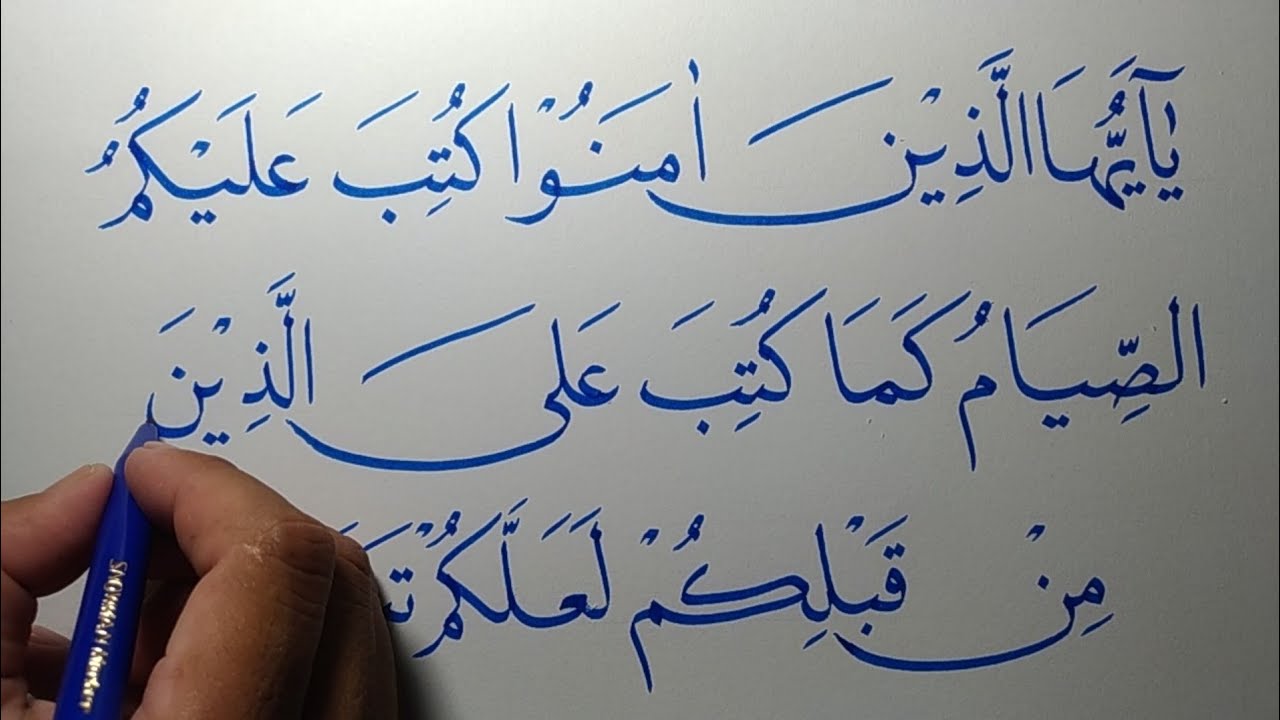 يٰٓاَيُّهَا الَّذِيْنَ اٰمَنُوْا كُتِبَ عَلَيْكُمُ
الصِّيَامُ كَمَا كُتِبَ عَلَى الَّذِيْنَ
مِنْ قَبْلِكُمْ لَعَلَّكُمْ
SNOWMAN